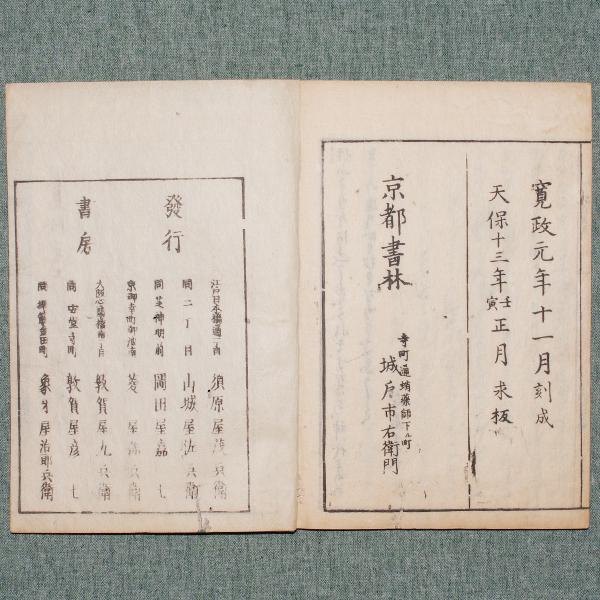 寛政元年十一月刻成
天保十三年壬寅正月求板
京都書林
寺町通蛸薬師下ル町
城戸市右衛門
發行
書房
江戸日本橋通一丁目 須原屋茂兵衛
同二丁目 山城屋佐兵衛
同芝神明前 岡田屋嘉七
京御幸町御池南 菱屋孫兵衛
大阪心斎橋南一丁目 敦賀屋九兵衛
同安堂寺町 敦賀屋彦七
象牙屋治郎兵衛